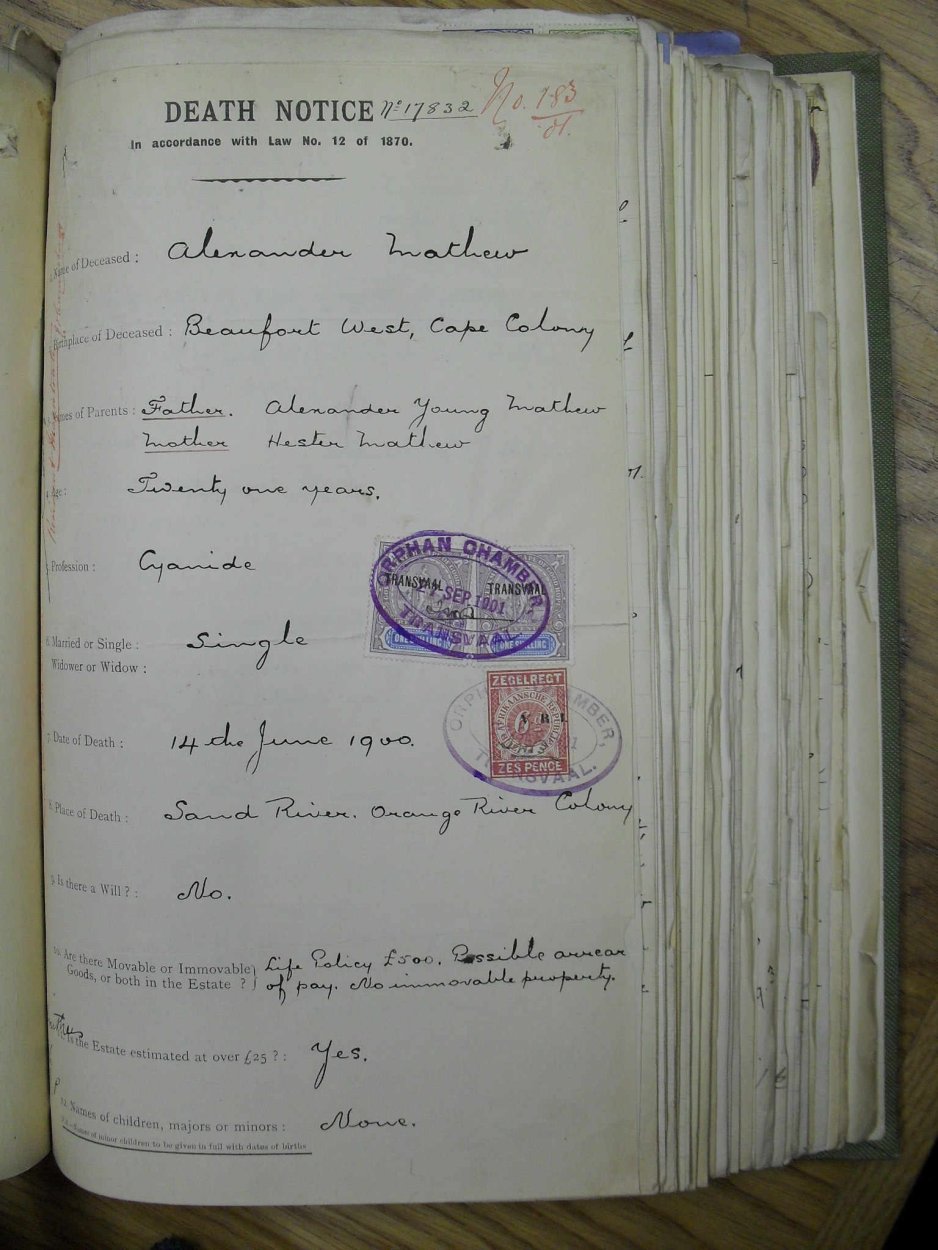 DEATH NOTICE No 17832 No. 183/01.
In accordance with Law No. 12 of 1870.
Name of Deceased : Alexander Mathew
Birthplace of Deceased : Beaufort West, Cape Colony
Names of Parents : Father. Alexander Young Mathew
Mother Hester Mathew
Age : Twenty one years.
Profession : Cyanide
ORPHAN CHAMBER,
TRANSVAAL TRANSVAAL
27 SEP 1901
TRANSVAAL
ONE SHILLING ONE SHILLING
6. Married or Single : Single
Widower or Widow :
ZEGELREGT
ORPHAN CHAMBER,
AFRIKAANSCHE REPUBLIEK
V. R. I.
TRANSVAAL.
ZES PENCE
7. Date of Death : 14 the June 1900.
8. Place of Death : Sand River. Orange River Colony
9. Is there a Will ? : No.
10. Are there Movable or Immovable Life Policy £500. Possible arrear
Goods, or both in the Estate ? of pay. No immovable property.
Is the Estate estimated at over £25 ? : Yes.
12. Names of children, majors or minors : None.
Names of minor children to be given in full with dates of births